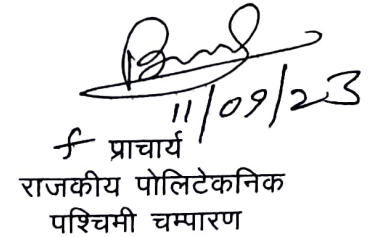 11/09/23
प्राचार्य
राजकीय पोलिटेकनिक
पश्चिमी चम्पारण